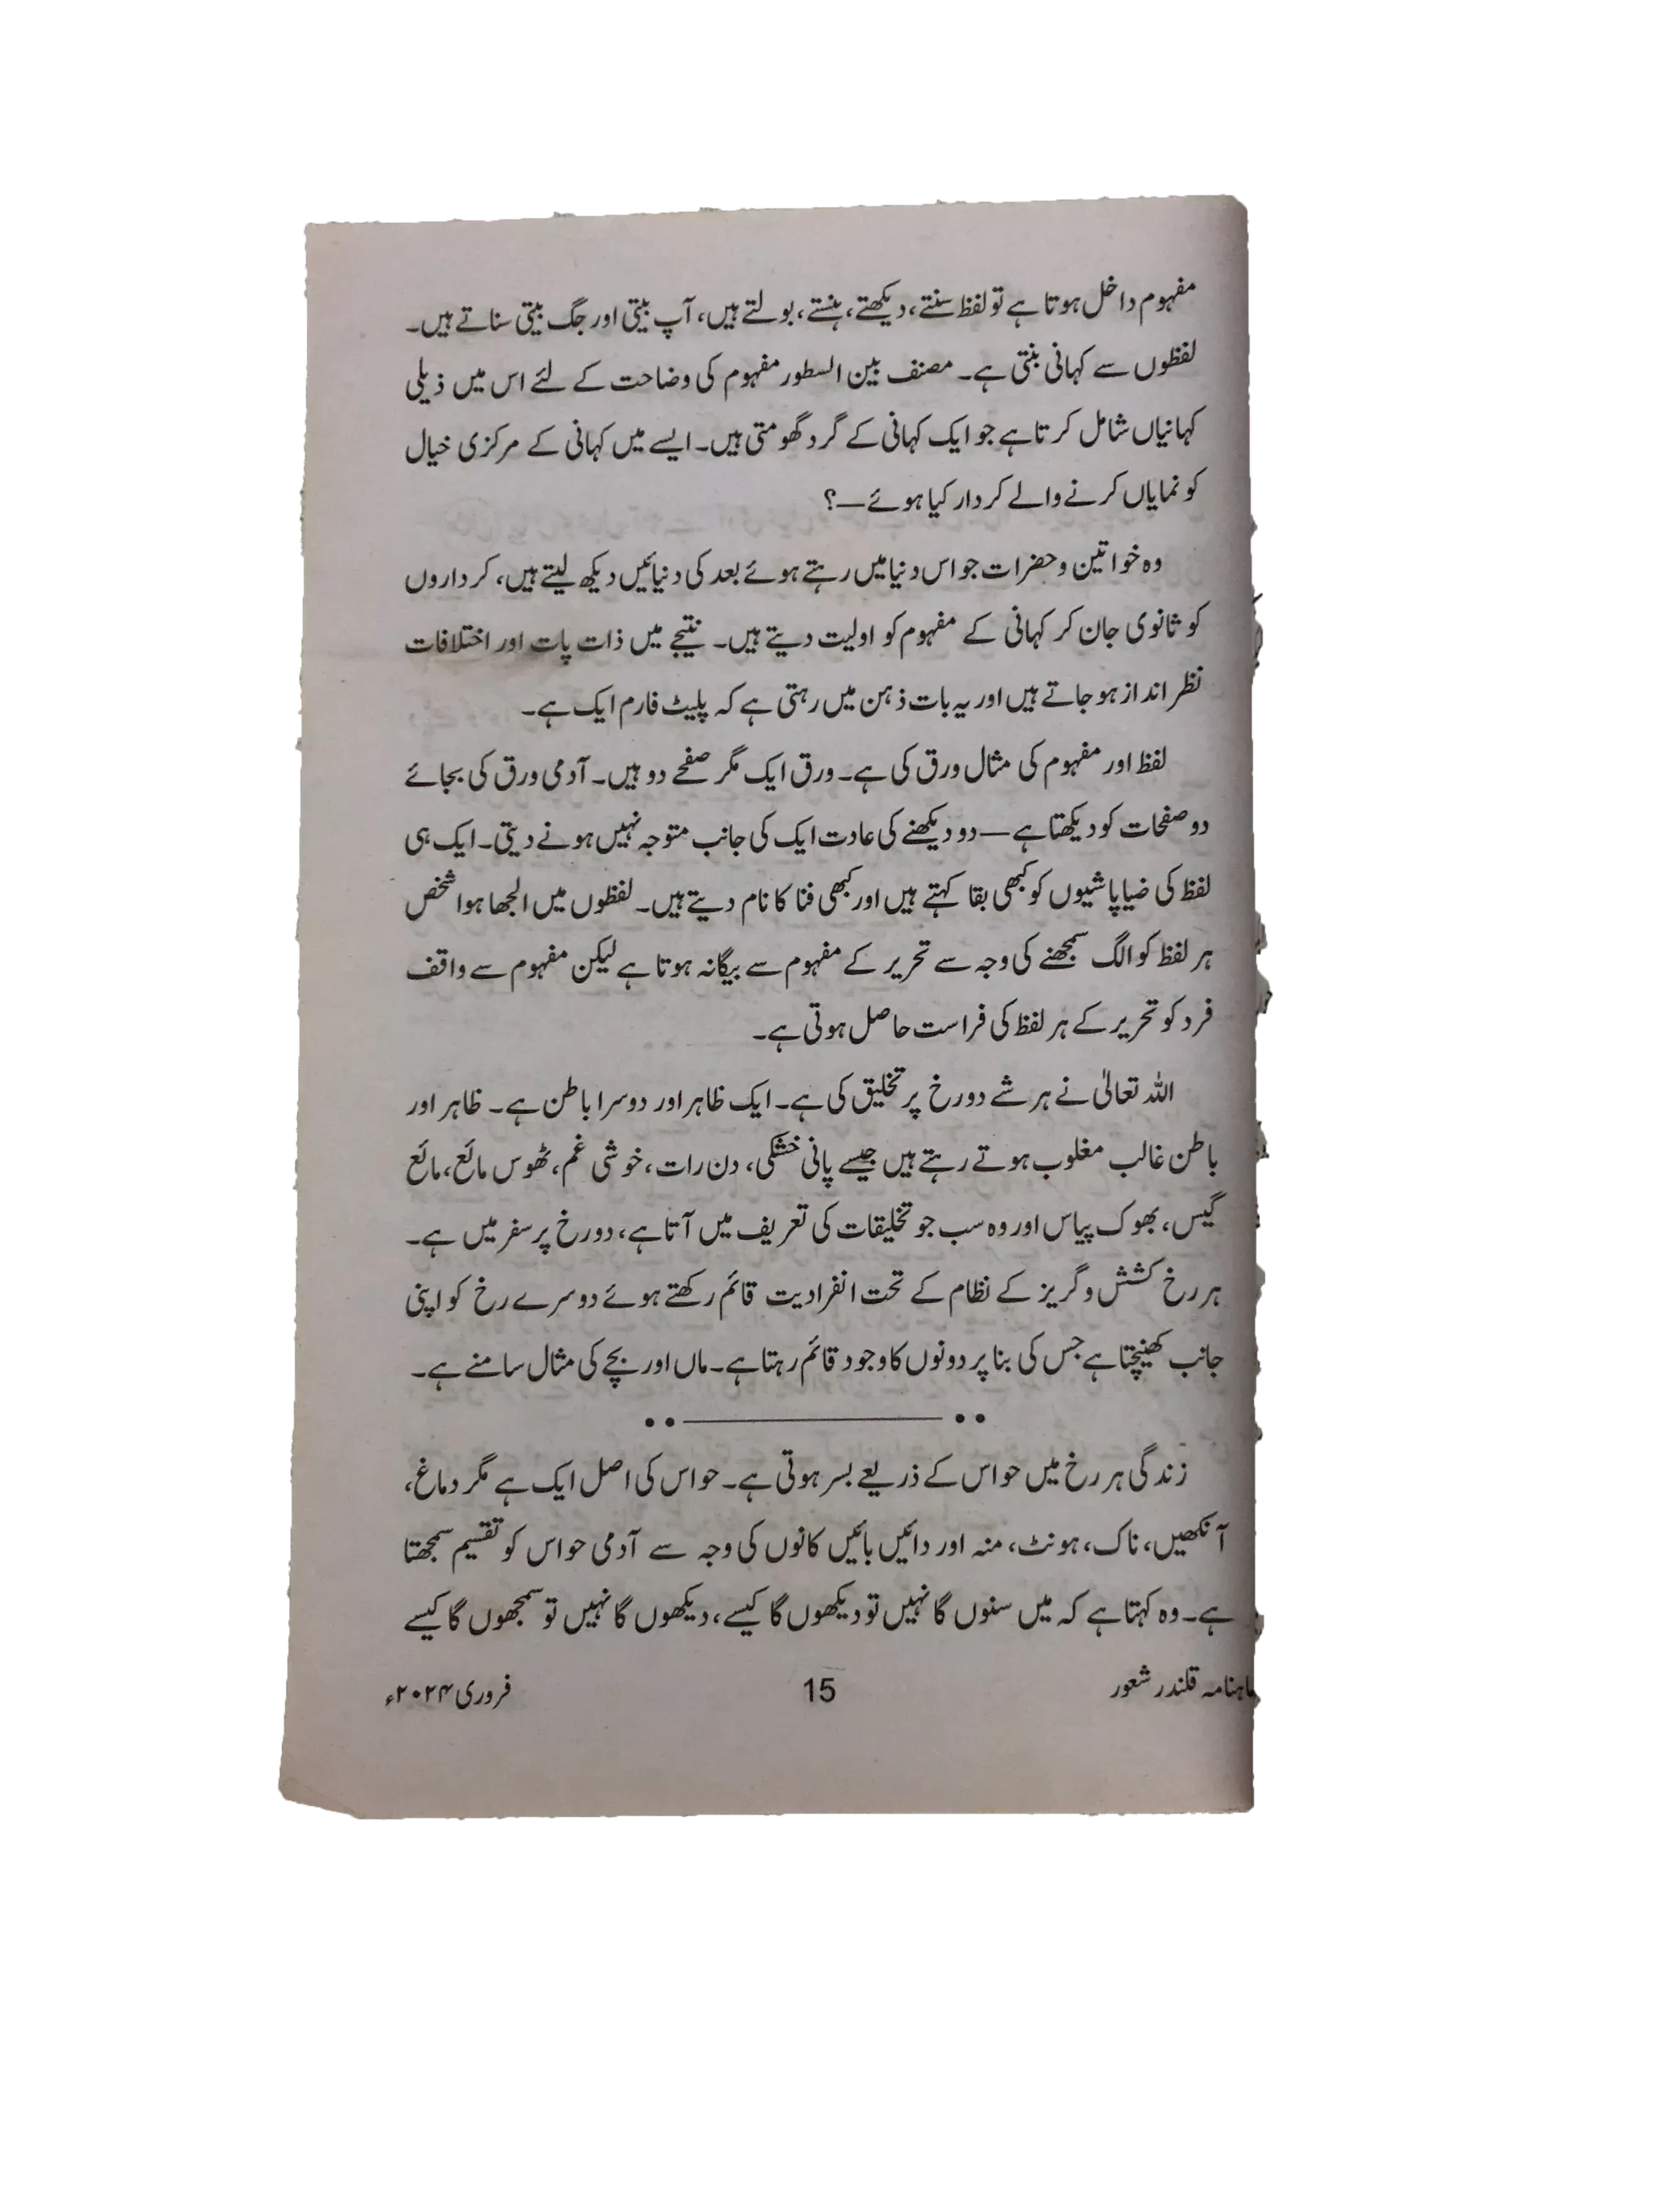 مفہوم داخل ہوتا ہے تو لفظ سنتے، دیکھتے، ہنستے، بولتے ہیں، آپ بیتی اور جگ بیتی سناتے ہیں۔
لفظوں سے کہانی بنتی ہے۔ مصنف بین السطور مفہوم کی وضاحت کے لئے اس میں ذیلی
کہانیاں شامل کرتا ہے جو ایک کہانی کے گرد گھومتی ہیں۔ ایسے میں کہانی کے مرکزی خیال
کو نمایاں کرنے والے کردار کیا ہوئے—؟
وہ خواتین و حضرات جو اس دنیا میں رہتے ہوئے بعد کی دنیائیں دیکھ لیتے ہیں، کرداروں
کو ثانوی جان کر کہانی کے مفہوم کو اولیت دیتے ہیں۔ نتیجے میں ذات پات اور اختلافات
نظر انداز ہو جاتے ہیں اور یہ بات ذہن میں رہتی ہے کہ پلیٹ فارم ایک ہے۔
لفظ اور مفہوم کی مثال ورق کی ہے۔ ورق ایک مگر صفحے دو ہیں۔ آدمی ورق کی بجائے
دو صفحات کو دیکھتا ہے—دو دیکھنے کی عادت ایک کی جانب متوجہ نہیں ہونے دیتی۔ ایک ہی
لفظ کی ضیاپاشیوں کو کبھی بقا کہتے ہیں اور کبھی فنا کا نام دیتے ہیں۔ لفظوں میں الجھا ہوا شخص
ہر لفظ کو الگ سمجھنے کی وجہ سے تحریر کے مفہوم سے بیگانہ ہوتا ہے لیکن مفہوم سے واقف
فرد کو تحریر کے ہر لفظ کی فراست حاصل ہوتی ہے۔
اللہ تعالیٰ نے ہر شے دو رخ پر تخلیق کی ہے۔ ایک ظاہر اور دوسرا باطن ہے۔ ظاہر اور
باطن غالب مغلوب ہوتے رہتے ہیں جیسے پانی خشکی، دن رات، خوشی غم، ٹھوس مائع، مائع
گیس، بھوک پیاس اور وہ سب جو تخلیقات کی تعریف میں آتا ہے، دو رخ پر سفر میں ہے۔
ہر رخ کشش و گریز کے نظام کے تحت انفرادیت قائم رکھتے ہوئے دوسرے رخ کو اپنی
جانب کھینچتا ہے جس کی بنا پر دونوں کا وجود قائم رہتا ہے۔ ماں اور بچے کی مثال سامنے ہے۔
زندگی ہر رخ میں حواس کے ذریعے بسر ہوتی ہے۔ حواس کی اصل ایک ہے مگر دماغ،
آنکھیں، ناک، ہونٹ، منہ اور دائیں بائیں کانوں کی وجہ سے آدمی حواس کو تقسیم سمجھتا
ہے۔ وہ کہتا ہے کہ میں سنوں گا نہیں تو دیکھوں گا کیسے، دیکھوں گا نہیں تو سمجھوں گا کیسے
ماہنامہ قلندر شعور 15 فروری ۲۰۲۴ء